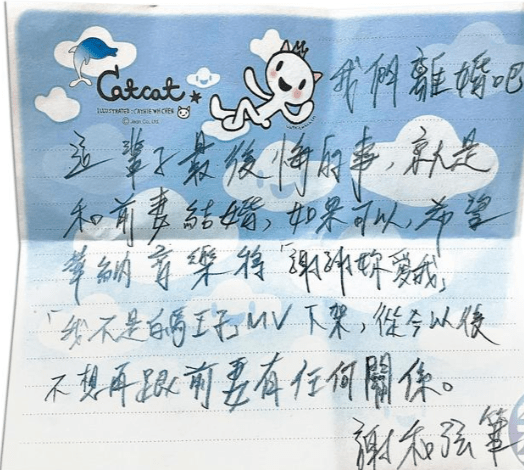 Catcat
ILLUSTRATOR:CATHIE WHCHEN
© Jeon Co., Ltd.
我們離婚吧
這輩子最後悔的事,就是
和前妻結婚,如果可以,希望
華納音樂將「謝謝妳愛我」
「我不是白馬王子」MV下架,從今以後
不想再跟前妻有任何關係。
謝和弦筆